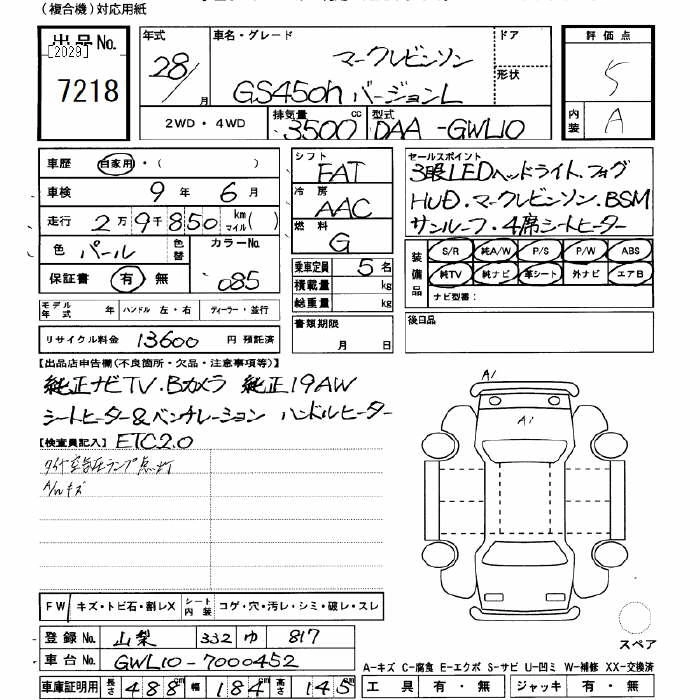 (複合機)対応用紙
出品No.
[2029]
7218
年式 28 / 月
車名・グレード マークレビンソン
GS450h バージョンL
ドア
形状
評価点 5
内装 A
2WD・4WD
排気量 3500 cc
型式 DAA-GWL10
車歴 自家用・( )
車検 9年 6月
走行 2万9千850 km マイル( )
色 パール 色替
カラーNo. 085
保証書 有 無
シフト FAT
冷房 AAC
燃料 G
乗車定員 5名
積載量 kg
総重量 kg
セールスポイント
3眼LEDヘッドライト.フォグ
HUD.マークレビンソン.BSM
サンルーフ・4席シートヒーター
装備品 S/R 純A/W P/S P/W ABS
純TV 純ナビ 革シート 外ナビ エアB
ナビ型番:
モデル年式 年 ハンドル 左・右 ディーラー・並行
リサイクル料金 13600 円 預託済
書類期限 月 日
後日品
【出品店申告欄(不良箇所・欠品・注意事項等)】
純正ナビTV.Bカメラ 純正19AW
シートヒーター&ベンチレーション ハンドルヒーター
【検査員記入】 ETC2.0
タイヤ空気圧ランプ点灯
A/Wキズ
A1
A1
FW キズ・トビ石・割レX シート内装 コゲ・穴・汚レ・シミ・破レ・スレ
登録No. 山梨 332 ゆ 817
車台No. GWL10-7000452
車庫証明用 長さ 488cm 幅 184cm 高さ 145cm
スペア
A-キズ C-腐食 E-エクボ S-サビ U-凹ミ W-補修 XX-交換済
工具 有・無 ジャッキ 有・無